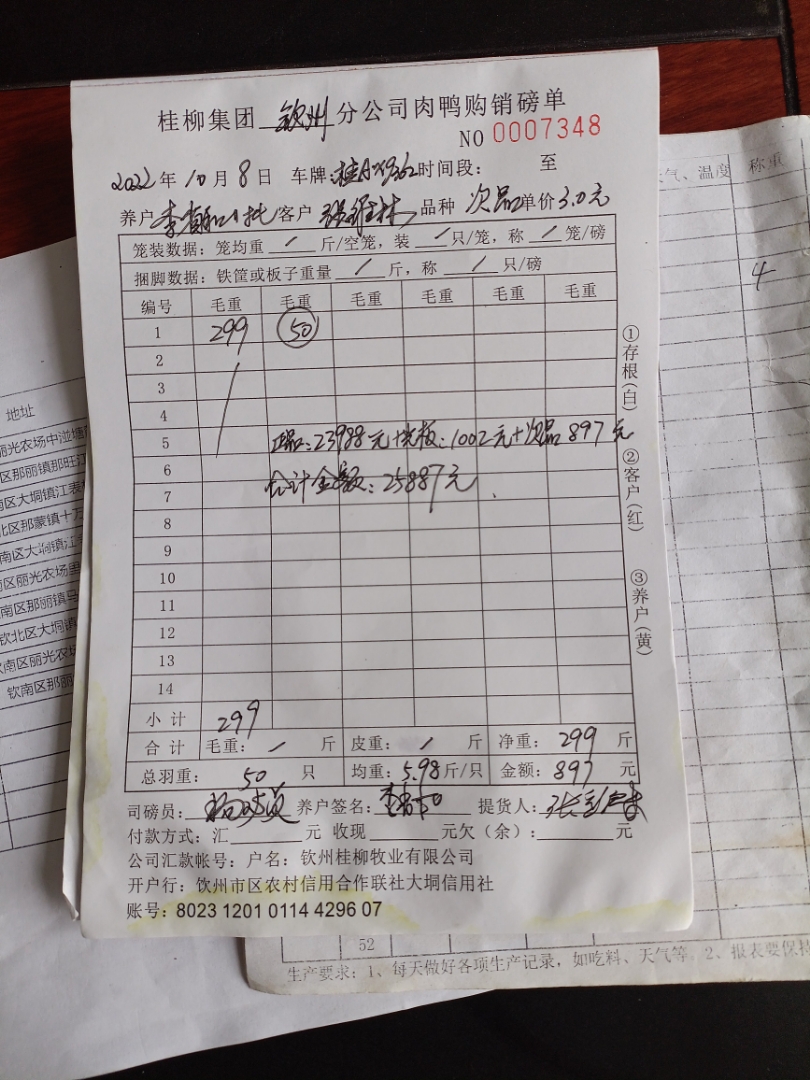 桂柳集团 钦州 分公司肉鸭购销磅单
NO 0007348
2022年10月8日 车牌: 时间段: 至
养户 客户 品种 次品 单价 3.0元
笼装数据:笼均重 / 斤/空笼,装 / 只/笼,称 / 笼/磅
捆脚数据:铁筐或板子重量 / 斤,称 / 只/磅
编号 毛重 毛重 毛重 毛重 毛重 毛重
1 299 50
2
3
4
5 正品:23988元+ 板:1002元+次品897元
6
7 合计金额:25887元.
8
9
10
11
12
13
14
小计 299
合计 毛重: / 斤 皮重: / 斤 净重: 299 斤
总羽重: 50 只 均重: 5.98 斤/只 金额: 897 元
司磅员: 养户签名: 提货人:
付款方式:汇 元 收现 元欠(余): 元
公司汇款帐号:户名:钦州桂柳牧业有限公司
开户行:钦州市区农村信用合作联社大垌信用社
账号:8023 1201 0114 4296 07
①存根(白)
②客户(红)
③养户(黄)
地址
丽光农场中
区那丽镇那旺江
南区大垌镇江表
北区那蒙镇十万
南区大垌镇江
南区丽光农场
南区那丽镇马
钦北区大垌镇
南区丽光农场
钦南区那丽
天气、温度 称重
4
52
生产要求:1、每天做好各项生产记录,如吃料、天气等。2、报表要保持